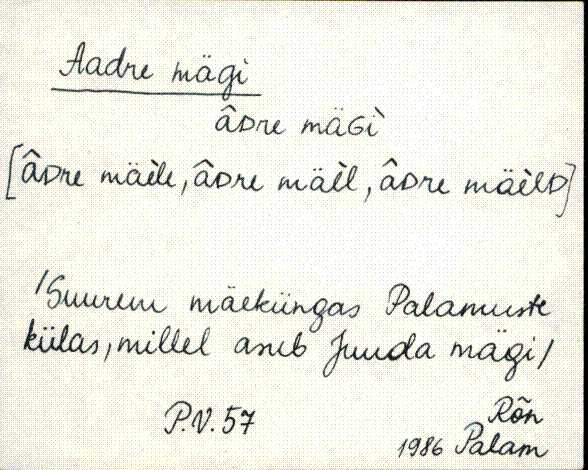 Aadre mägi
âᴅre mäɢì
[âᴅre mäèle, âᴅre mäèl, âᴅre mäèlᴅ]
/Suurem mäeküngas Palamuste
külas, millel asub Juuda mägi/
P.V. 57
Rõn
1986 Palam